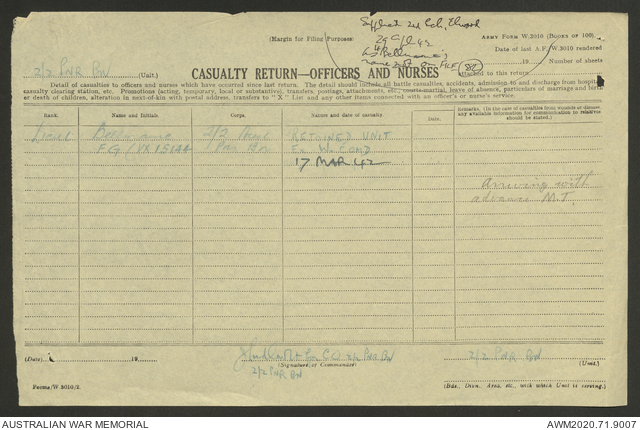 (Margin for Filing Purposes)
ARMY FORM W.3010 (BOOKS OF 100).
Date of last A.F./W.3010 rendered
19 Number of sheets
attached to this return
2/2 PNR BN (Unit.)
CASUALTY RETURN—OFFICERS AND NURSES
Detail of casualties to officers and nurses which have occurred since last return. The detail should include all battle casualties, accidents, admission to and discharge from hospital
casualty clearing station, etc. Promotions (acting, temporary, local or substantive), transfers, postings, attachments, etc., courts-martial, leave of absence, particulars of marriage and birth
or death of children, alteration in next-of-kin with postal address, transfers to "X" List and any other items connected with an officer's or nurse's service.
Rank. Name and Initials. Corps. Nature and date of casualty. Remarks. (In the case of casualties from wounds or disease, any available information for communication to relatives should be stated.)
Lieut 2/2 REJOINED UNIT
17 MAR 42
arriving with
advance M.T.
(Date) 19 CO 2/2 PNR BN 2/2 PNR BN
(Signature of Commander) (Unit.)
2/2 PNR BN
Forms/W.3010/2. (Bde., Divn., Area, etc., with which Unit is serving.)
AUSTRALIAN WAR MEMORIAL AWM2020.71.9007